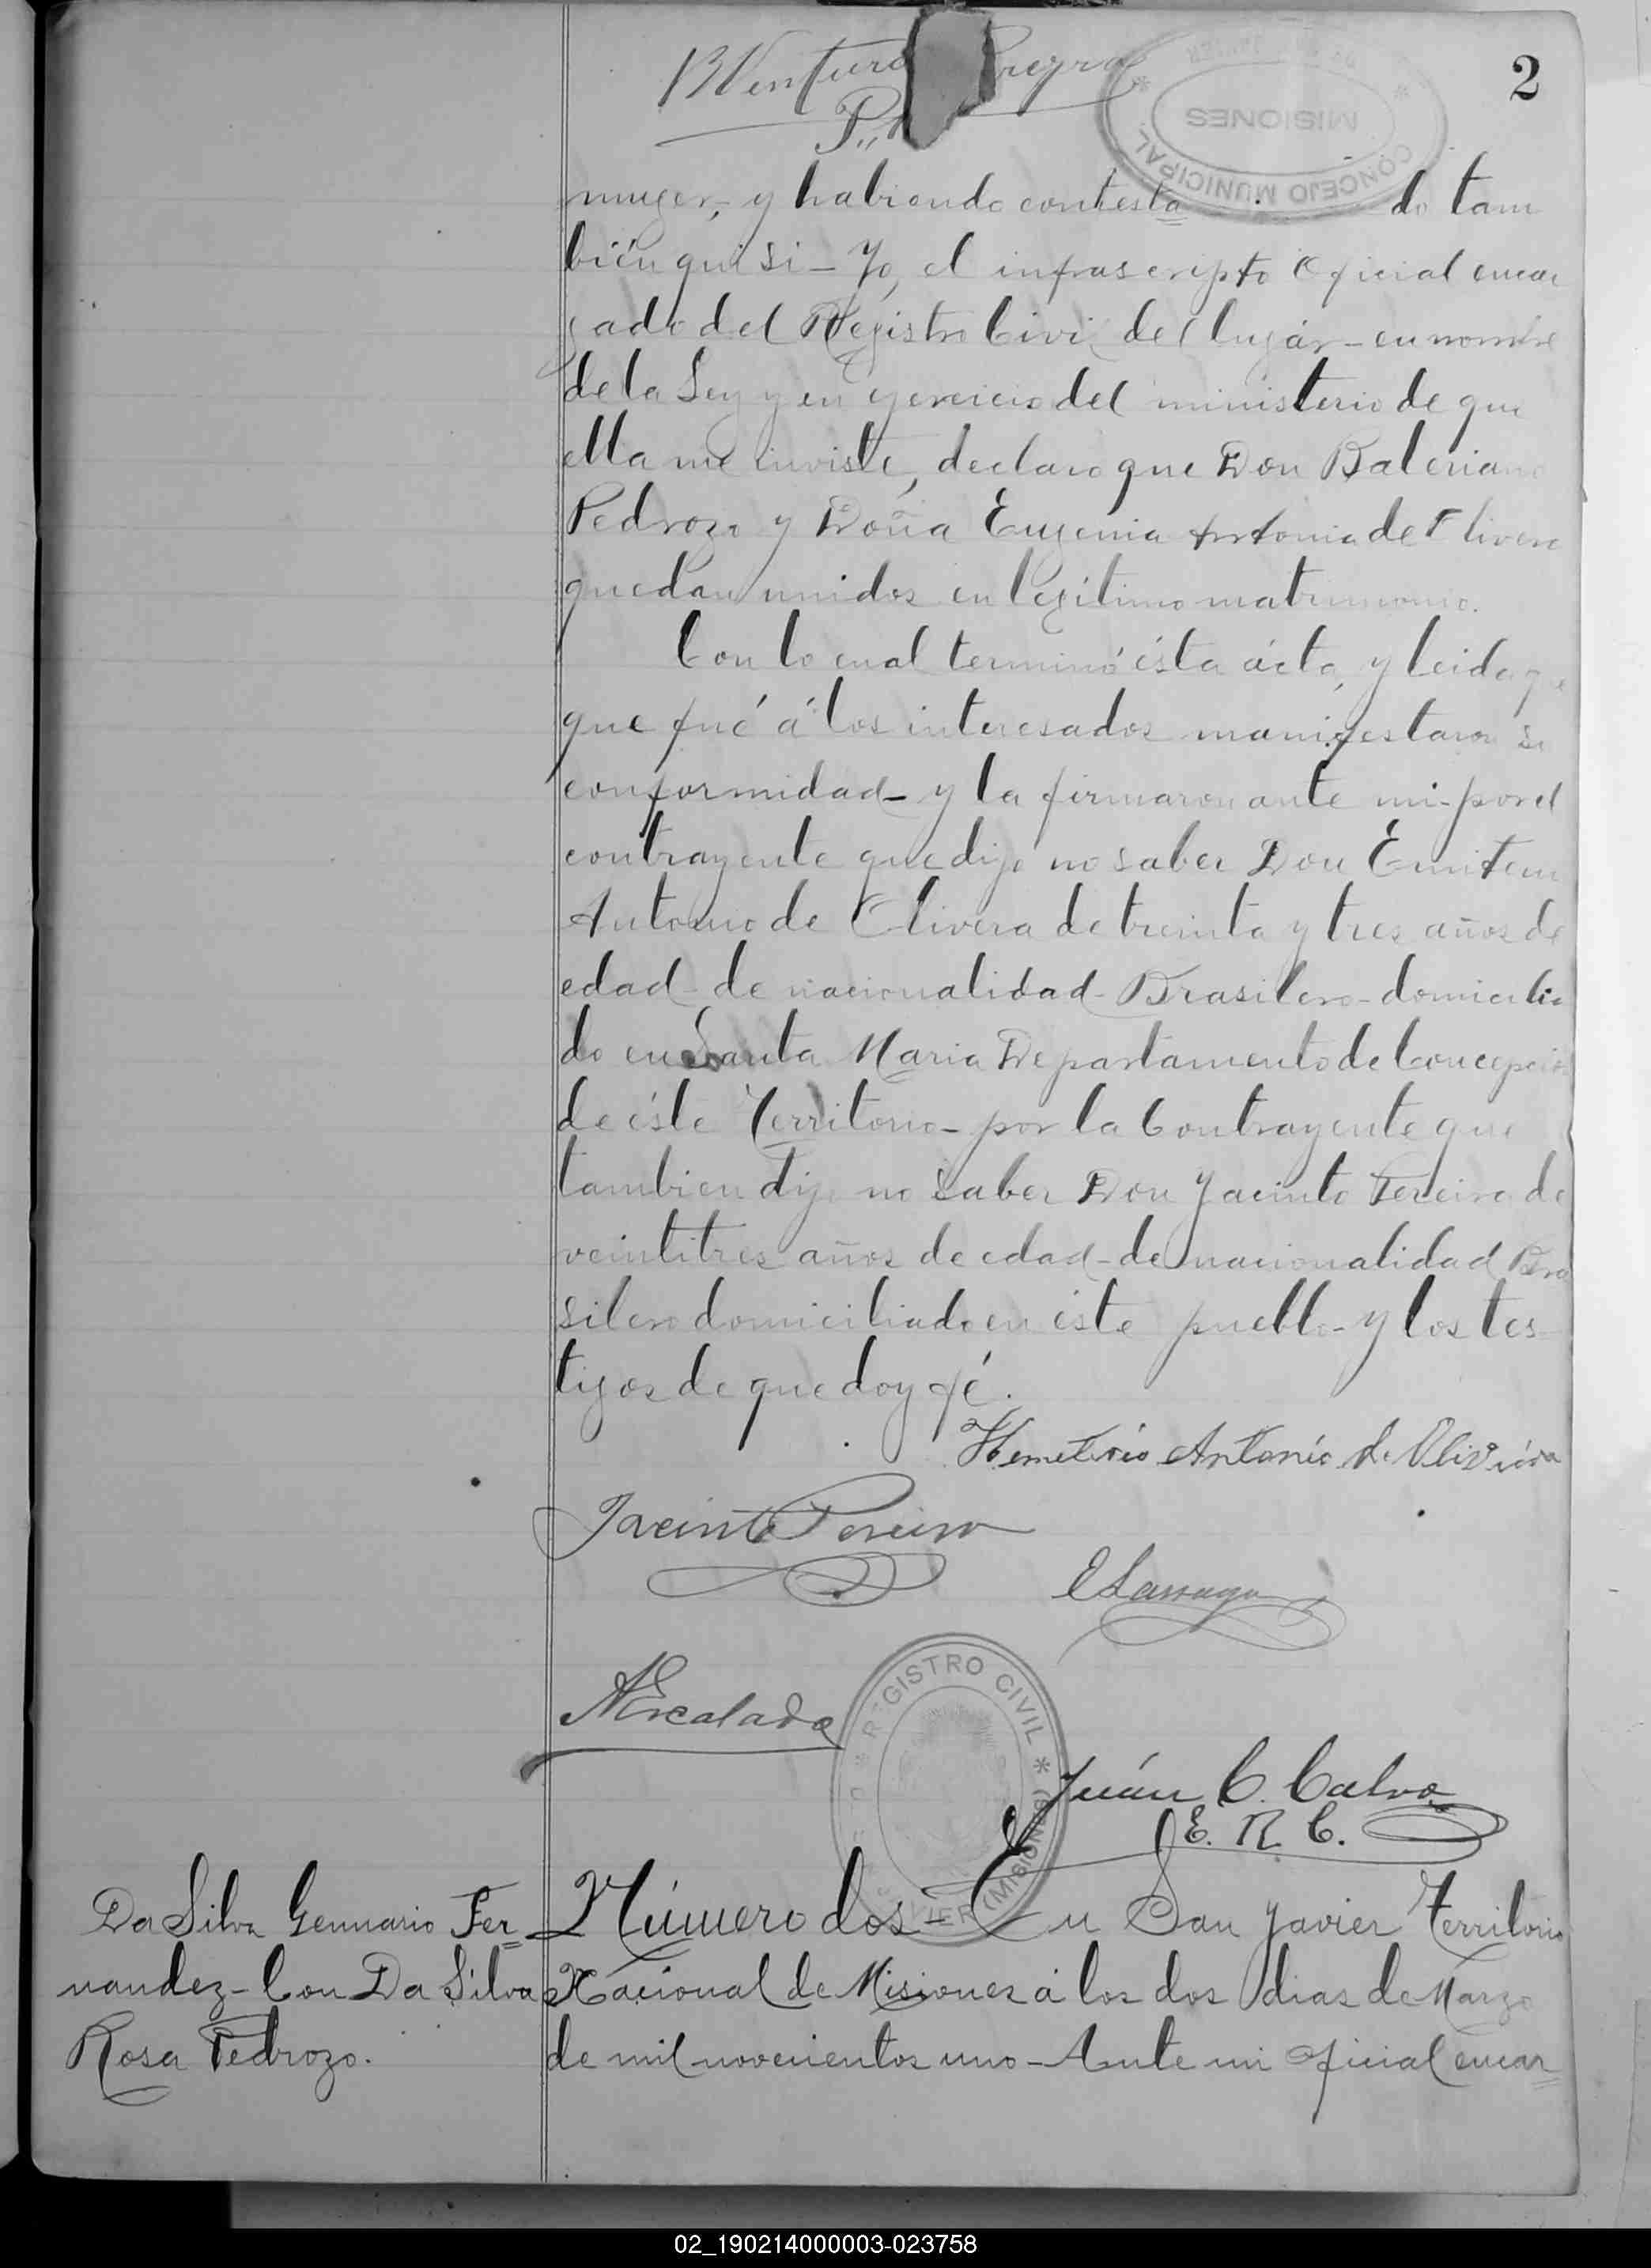 BVentura Preyra
2
P..
CONCEJO MUNICIPAL
MISIONES
muger, y habiendo contesta do tam
bién que si_ Yo, el infrascripto Oficial encar
gado del Registro Civil del lugár_ en nombre
de la Ley y en ejercicio del ministerio de que
ella me inviste, declaro que Don Baleriano
Pedrozo y Doña Eugenia Antonia de Olivera
quedan unidos en legítimo matrimonio.
Con lo cual terminó ésta ácta, y leida que
que fué á los interesados manifestaron su
conformidad_ y la firmaron ante mi_ por el
contrayente que dijo no saber Don Emiterio
Antonio de Olivera de treinta y tres años de
edad_ de nacionalidad_ Brasilero_ domicilia
do en Santa Maria Departamento de Concepción
de éste Territorio_ por la Contrayente que
tambien dijo no saber Don Jacinto Pereira de
veintitres años de edad_ de nacionalidad Bra
silero domiciliado en éste pueblo_ y los tes_
tigos de que doy fé.
Hemeterio Antonio de Oliveira
Jacinto Pereira
ELarraga
AEscalada
REGISTRO CIVIL
VIER (MISIONES)
Juán C. Calvo
E. R. C.
Da Silva Gennario Fer=
nandez_ Con Da Silva
Rosa Pedrozo.
Número dos_ En San Javier Territorio
Nacional de Misiones á los dos dias de Marzo
de mil novecientos uno_ Ante mi oficial encar=
02_190214000003-023758